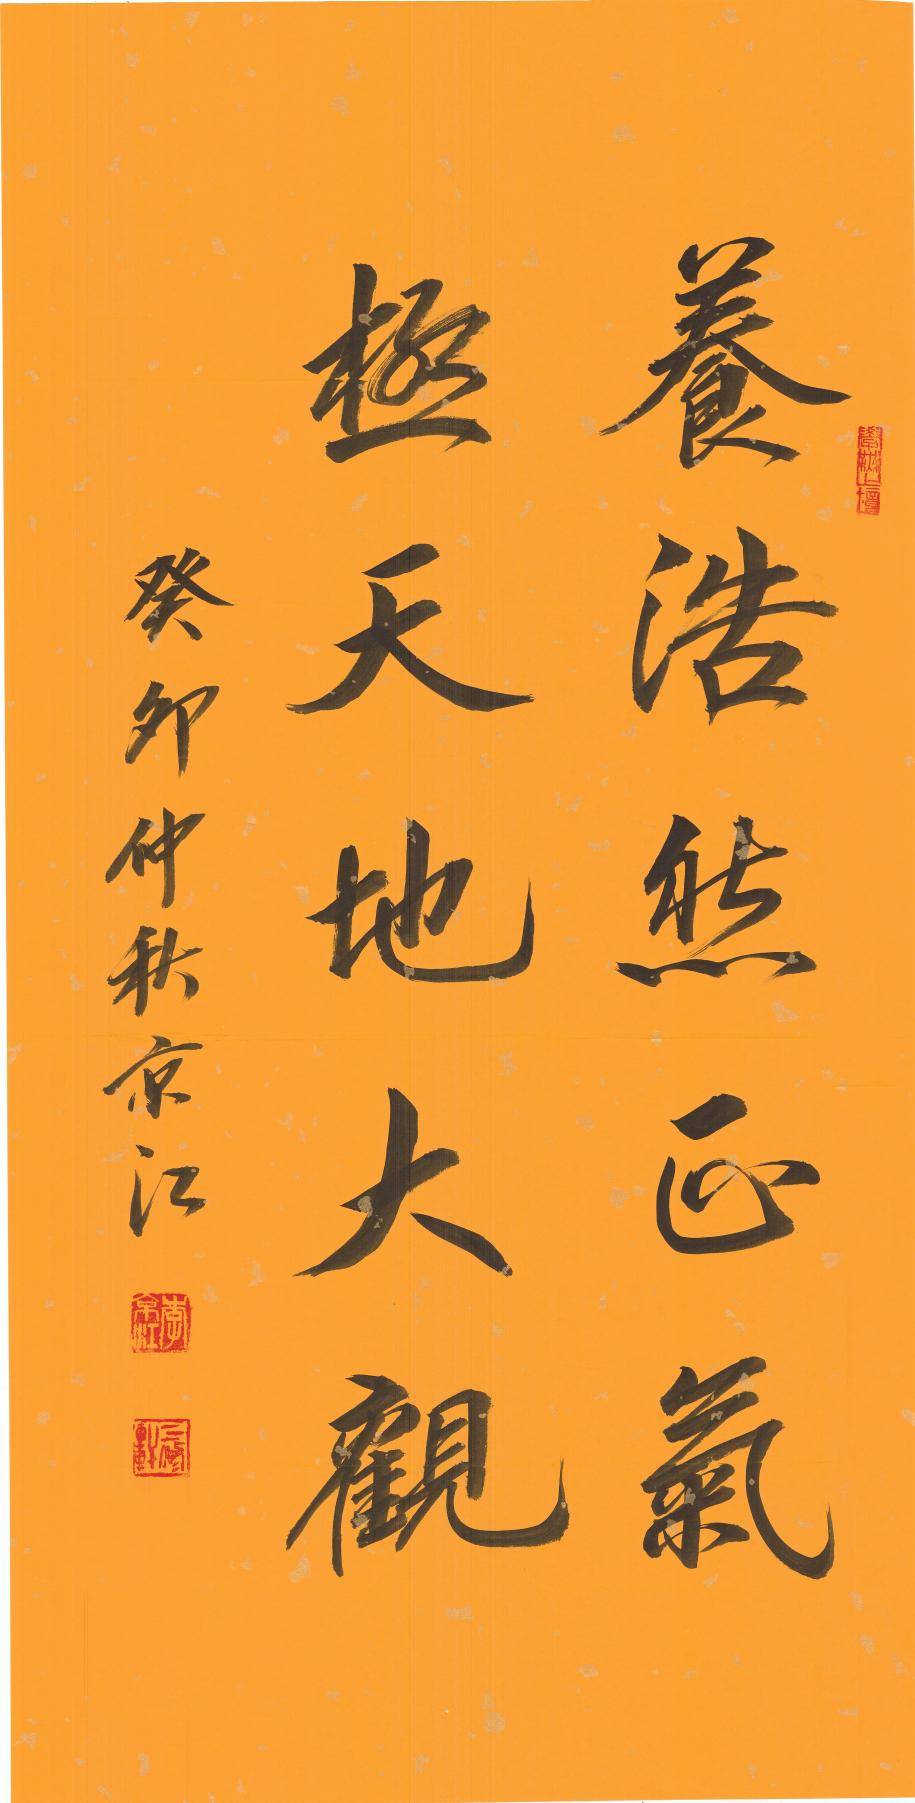 養浩然正氣
極天地大觀
癸卯仲秋京江
李京江